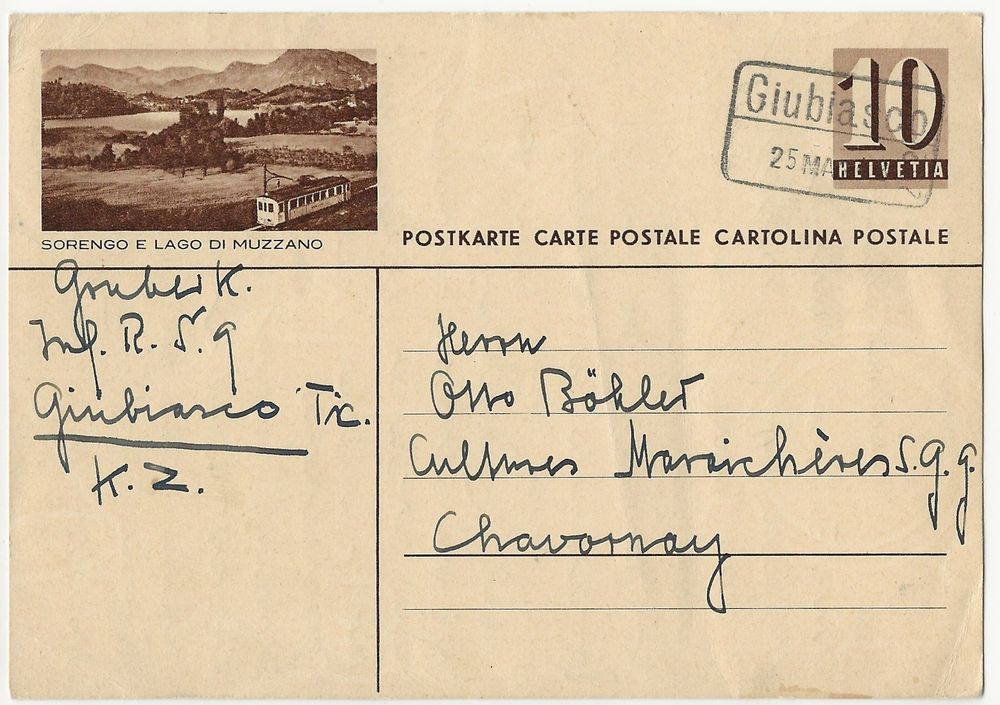 SORENGO E LAGO DI MUZZANO
10
HELVETIA
Giubiasco
25 MA
POSTKARTE CARTE POSTALE CARTOLINA POSTALE
Gruber K.
Ing. R. S. g
Giubiasco Tic.
K. Z.
Herrn
Otto Böhler
Cultures Maraichères S. g. g.
Chavornay